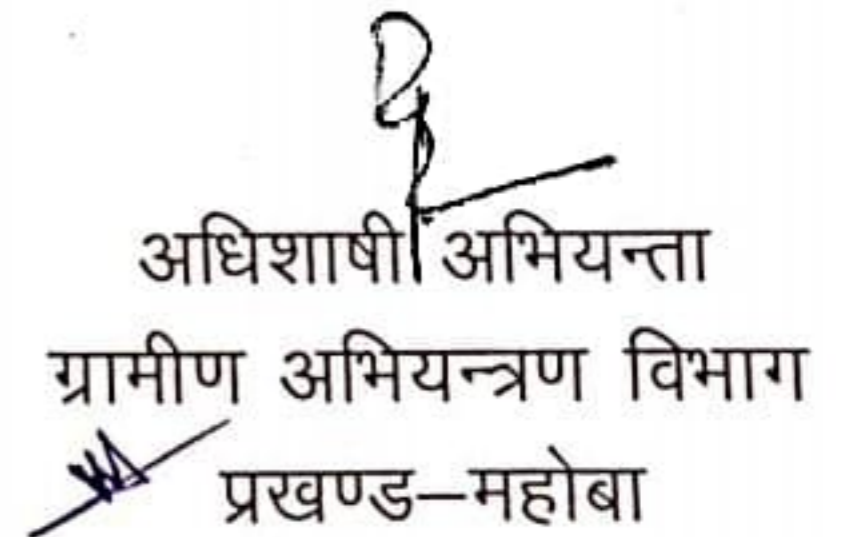 अधिशाषी अभियन्ता
ग्रामीण अभियन्त्रण विभाग
प्रखण्ड–महोबा